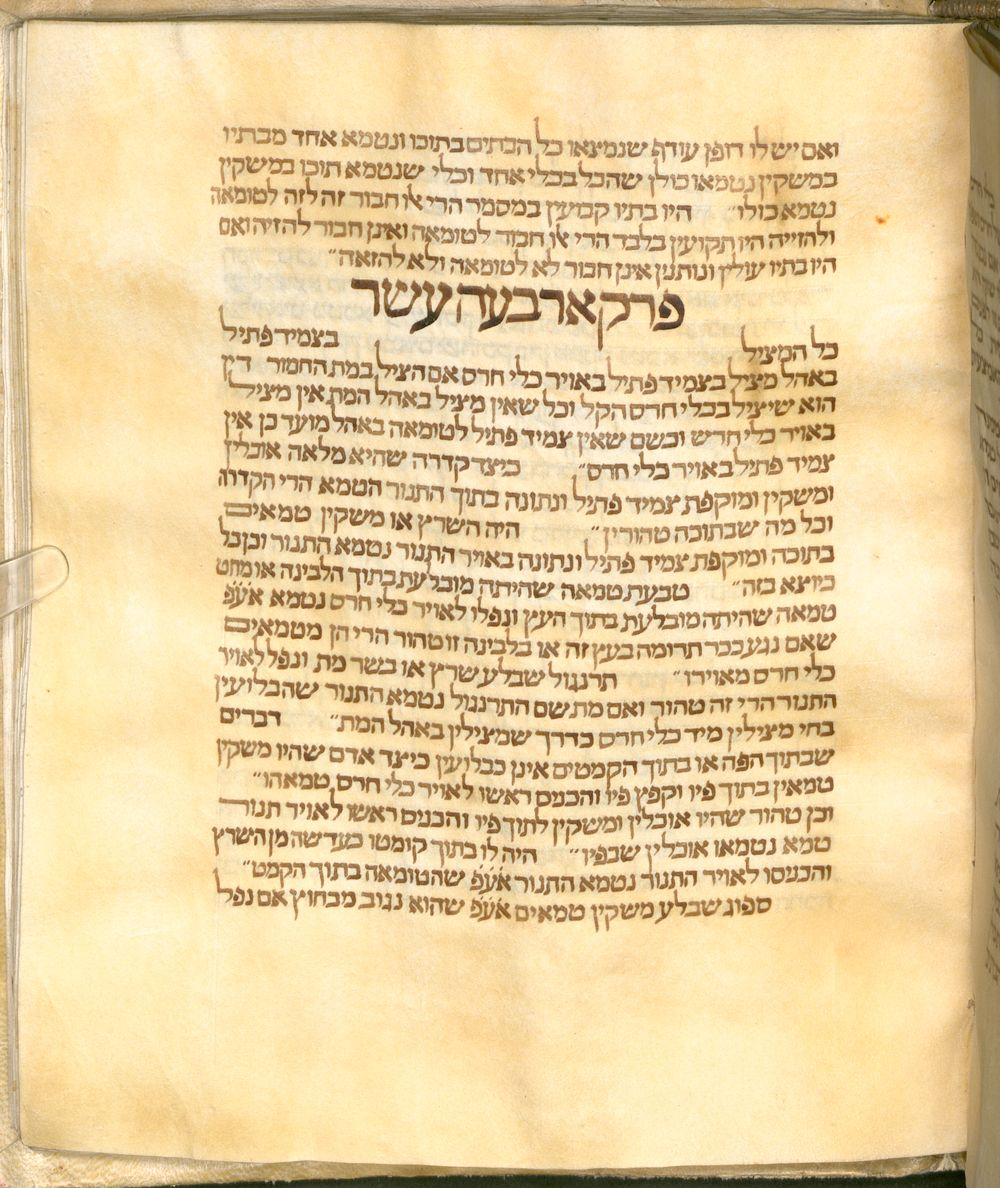 ואם יש לו דופן עודף שנמצאו כל הבתים בתוכו ונטמא אחד מבתיו
במשקין נטמאו כולן שהכל בכלי אחד וכלי שנטמא תוכו במשקין
נטמא כולו״ היו בתיו קבועין במסמר הרי אלו חבור זה לזה לטומאה
ולהזייה היו תקועין בלבד הרי אלו חבור לטומאה ואינן חבור להזיה ואם
היו בתיו עולין ונותנין אינן חבור לא לטומאה ולא להזאה״
פרק ארבעה עשר
כל המציל בצמיד פתיל
באהל מציל בצמיד פתיל באויר כלי חרס אם הציל במת החמור דין
הוא שיציל בכלי חרס הקל וכל שאין מציל באהל המת אין מציל
באויר כלי חרש וכשם שאין צמיד פתיל לטומאה באהל מועד כן אין
צמיד פתיל באויר כלי חרס״ כיצד קדרה שהיא מלאה אוכלין
ומשקין ומוקפת צמיד פתיל ונתונה בתוך התנור הטמא הרי הקדרה
וכל מה שבתוכה טהורין״ היה השרץ או משקין טמאים
בתוכה ומוקפת צמיד פתיל ונתונה באויר התנור נטמא התנור וכן כל
כיוצא בזה״ טבעת טמאה שהיתה מובלעת בתוך הלבינה או מחט
טמאה שהיתה מובלעת בתוך העץ ונפלו לאויר כלי חרס נטמא אע״פ
שאם נגע ככר תרומה בעץ זה או בלבינה זו טהור הרי הן מטמאים
כלי חרס מאוירו״ תרנגול שבלע שרץ או בשר מת ונפל לאויר
התנור הרי זה טהור ואם מת שם התרנגול נטמא התנור שהבלועין
בחי מצילין מיד כלי חרס כדרך שמצילין באהל המת״ דברים
שבתוך הפה או בתוך הקמטים אינן כבלועין כיצד אדם שהיו משקין
טמאין בתוך פיו וקפץ פיו והכניס ראשו לאויר כלי חרס טמאהו״
וכן טהור שהיו אוכלין ומשקין לתוך פיו והכניס ראשו לאויר תנור
טמא נטמאו אוכלין שבפיו״ היה לו בתוך קומטו כעדשה מן השרץ
והכניסו לאויר התנור נטמא התנור אע״פ שהטומאה בתוך הקמט״
ספוג שבלע משקין טמאים אע״פ שהוא נגוב מבחוץ אם נפל